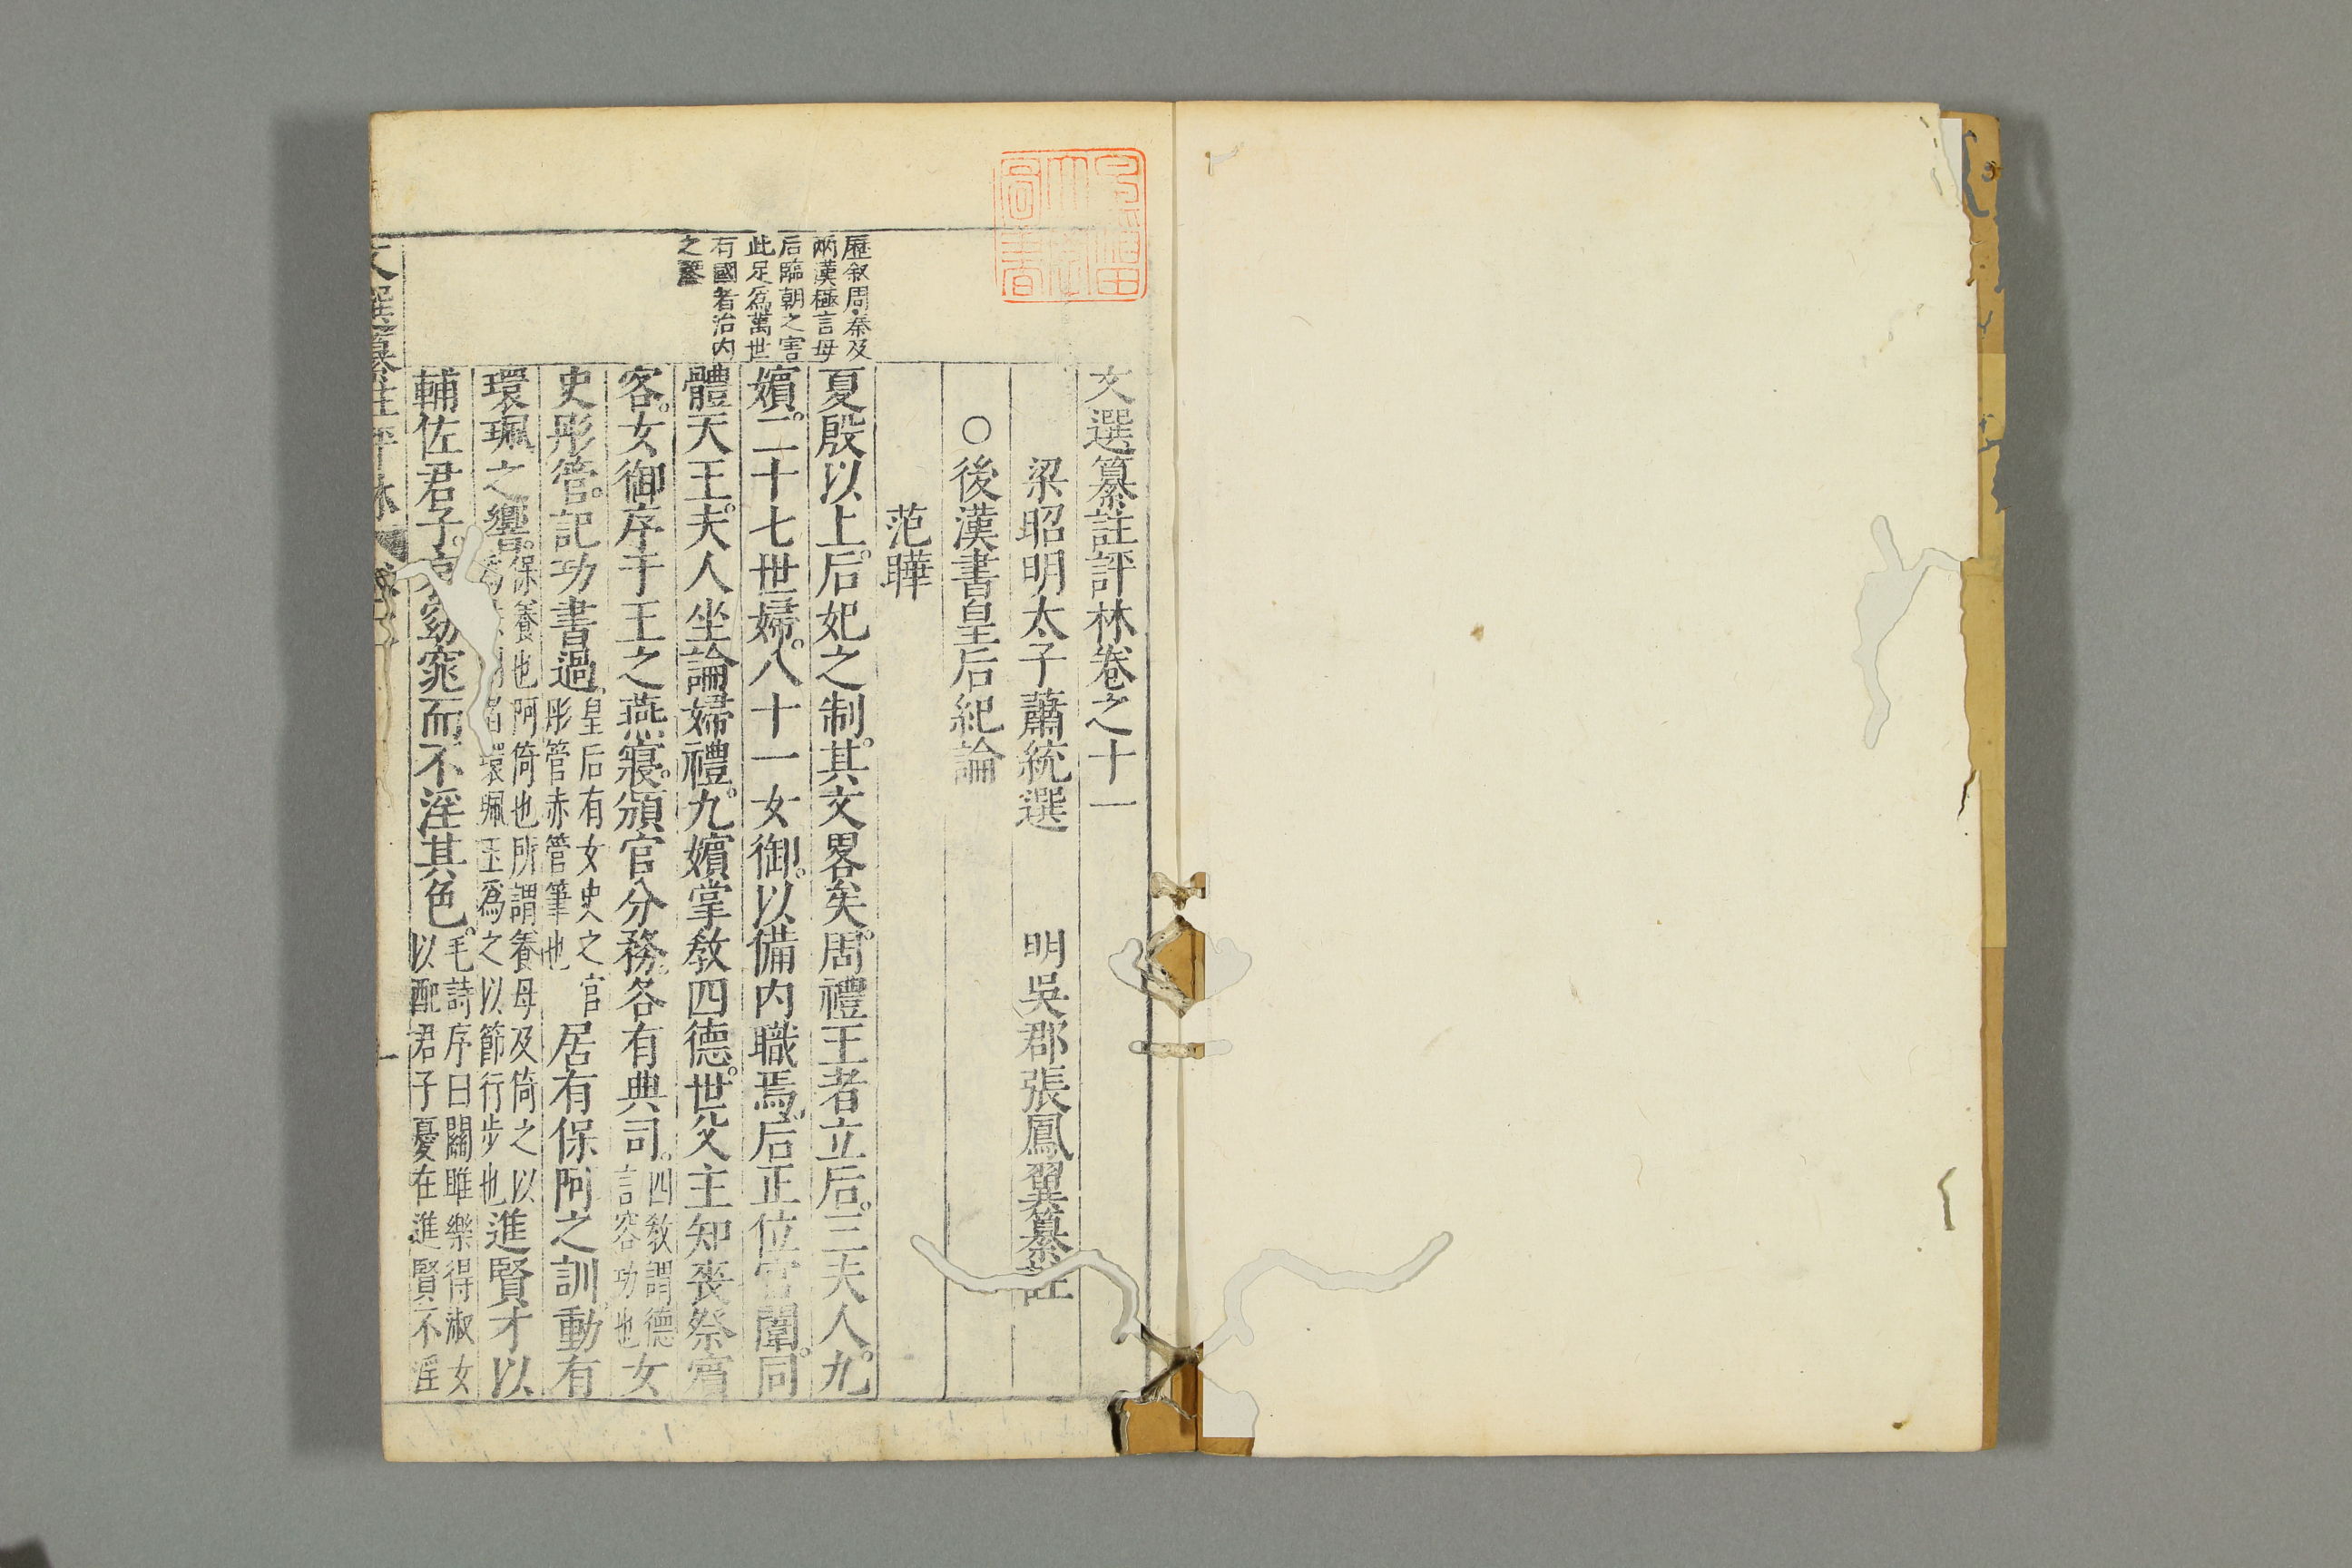 文選纂註評林卷之十一
梁昭明太子蕭統選 明吳郡張鳳翼纂註
○後漢書皇后紀論
范曄
歷叙周秦及
兩漢極言母
后臨朝之害
此足爲萬世
有國者治内
之鑒
夏殷以上。后妃之制。其文畧矣。周禮王者立后。三夫人。九
嬪。二十七世婦。八十一女御。以備内職焉。后正位宮闈。同
體天王。夫人坐論婦禮。九嬪掌教四德。世父主知喪祭賓
客。女御序于王之燕寢。頒官分務。各有典司。四教謂德
言容功也女
史彤管。記功書過。皇后有女史之官
彤管赤管筆也居有保阿之訓。動有
環珮之響。保養也阿倚也所謂養母及倚之以
環珮玉爲之以節行步也進賢才以
輔佐君子。窈窕而不淫其色。毛詩序曰關雎樂得淑女
以配君子憂在進賢不淫
文選纂註評林
一